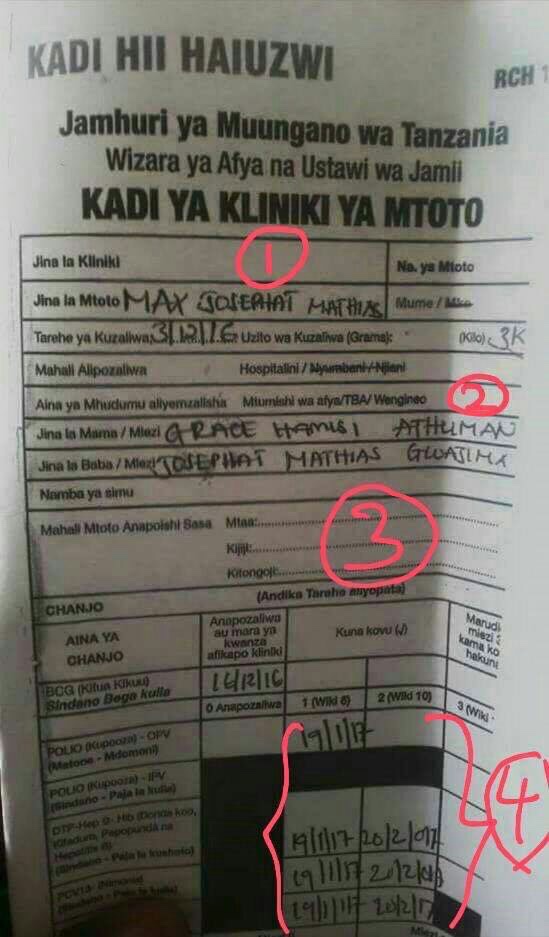 KADI HII HAIUZWI
RCH 1
Jamhuri ya Muungano wa Tanzania
Wizara ya Afya na Ustawi wa Jamii
KADI YA KLINIKI YA MTOTO
Jina la Kliniki 1 Na. ya Mtoto
Jina la Mtoto MAX JOSEPHAT MATHIAS Mume / Mke
Tarehe ya Kuzaliwa: 3/12/16 Uzito wa Kuzaliwa (Grams): (Kilo) 3K
Mahali Alipozaliwa Hospitalini / Nyumbani / Njiani
Aina ya Mhudumu aliyemzalisha Mtumishi wa afya/TBA/ Wengineo 2
Jina la Mama / Mlezi GRACE HAMISI ATHUMAN
Jina la Baba / Mlezi JOSEPHAT MATHIAS GWAJIMA
Namba ya simu
Mahali Mtoto Anapoishi Sasa Mtaa:
Kijiji: 3
Kitongoji:
CHANJO (Andika Tarehe aliyopata)
AINA YA CHANJO
Anapozaliwa au mara ya kwanza afikapo kliniki
Kuna kovu (√)
Marudi miezi 3 kama ko hakuna
BCG (Kifua Kikuu) 16/12/16
Sindano Bega kulia
0 Anapozaliwa 1 (Wiki 6) 2 (Wiki 10) 3 (Wiki
POLIO (Kupooza) - OPV 19/1/17
(Matone - Mdomoni)
POLIO (Kupooza) - IPV
(Sindano - Paja la kulia)
4
DTP-Hep B- Hib (Donda koo,
Kifaduro, Pepopunda na
Hepatitis B) 19/1/17
(Sindano - Paja la kushoto)
PCV13- (Nimonia) 19/1/17
(Sindano - Paja la kulia)
19/1/17 20/2/17